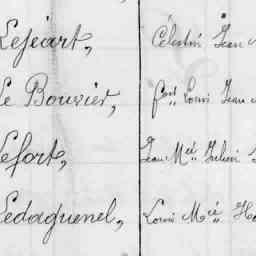 Lejéart, Célestin Jean
Le Bouvier, Louis Jean
Lefort, Jean Mie Julien
Ledaguenel, Louis Mie